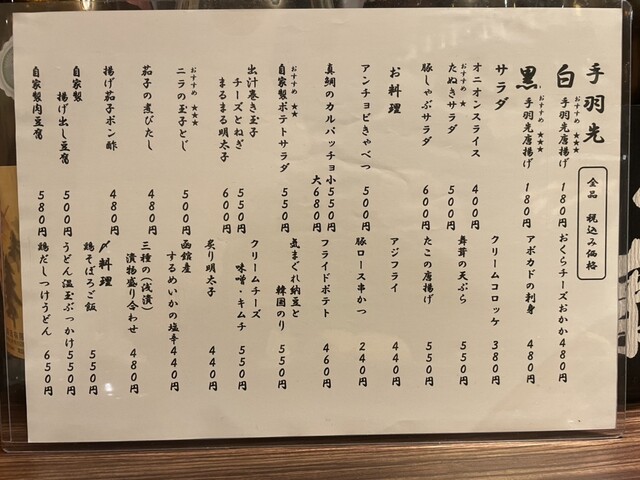 手羽光
全品 税込み価格
白 おすすめ ★★★
手羽光唐揚げ 180円
黒 おすすめ ★★★
手羽光唐揚げ 180円
サラダ
オニオンスライス 400円
おすすめ ★
たぬきサラダ 500円
豚しゃぶサラダ 600円
お料理
アンチョビきゃべつ 500円
真鯛のカルパッチョ 小550円
大680円
おすすめ ★★
自家製ポテトサラダ 550円
出汁巻き玉子
チーズとねぎ 550円
まるまる明太子 600円
おすすめ ★★★
ニラの玉子とじ 500円
茄子の煮びたし 480円
揚げ茄子ポン酢 480円
自家製
揚げ出し豆腐 500円
自家製肉豆腐 580円
おくらチーズおかか 480円
アボカドの刺身 480円
クリームコロッケ 380円
舞茸の天ぷら 550円
たこの唐揚げ 550円
アジフライ 440円
豚ロース串かつ 240円
フライドポテト 460円
気まぐれ納豆と
韓国のり 550円
クリームチーズ
味噌・キムチ 550円
炙り明太子 440円
函館産
するめいかの塩辛 440円
三種の(浅漬)
漬物盛り合わせ 480円
〆料理
鶏そぼろご飯 550円
うどん温玉ぶっかけ 550円
鶏だしつけうどん 650円